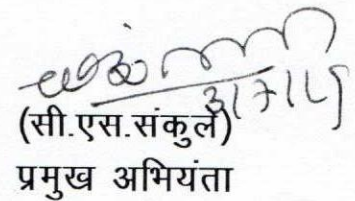 31/7/15
(सी.एस.संकुले)
प्रमुख अभियंता